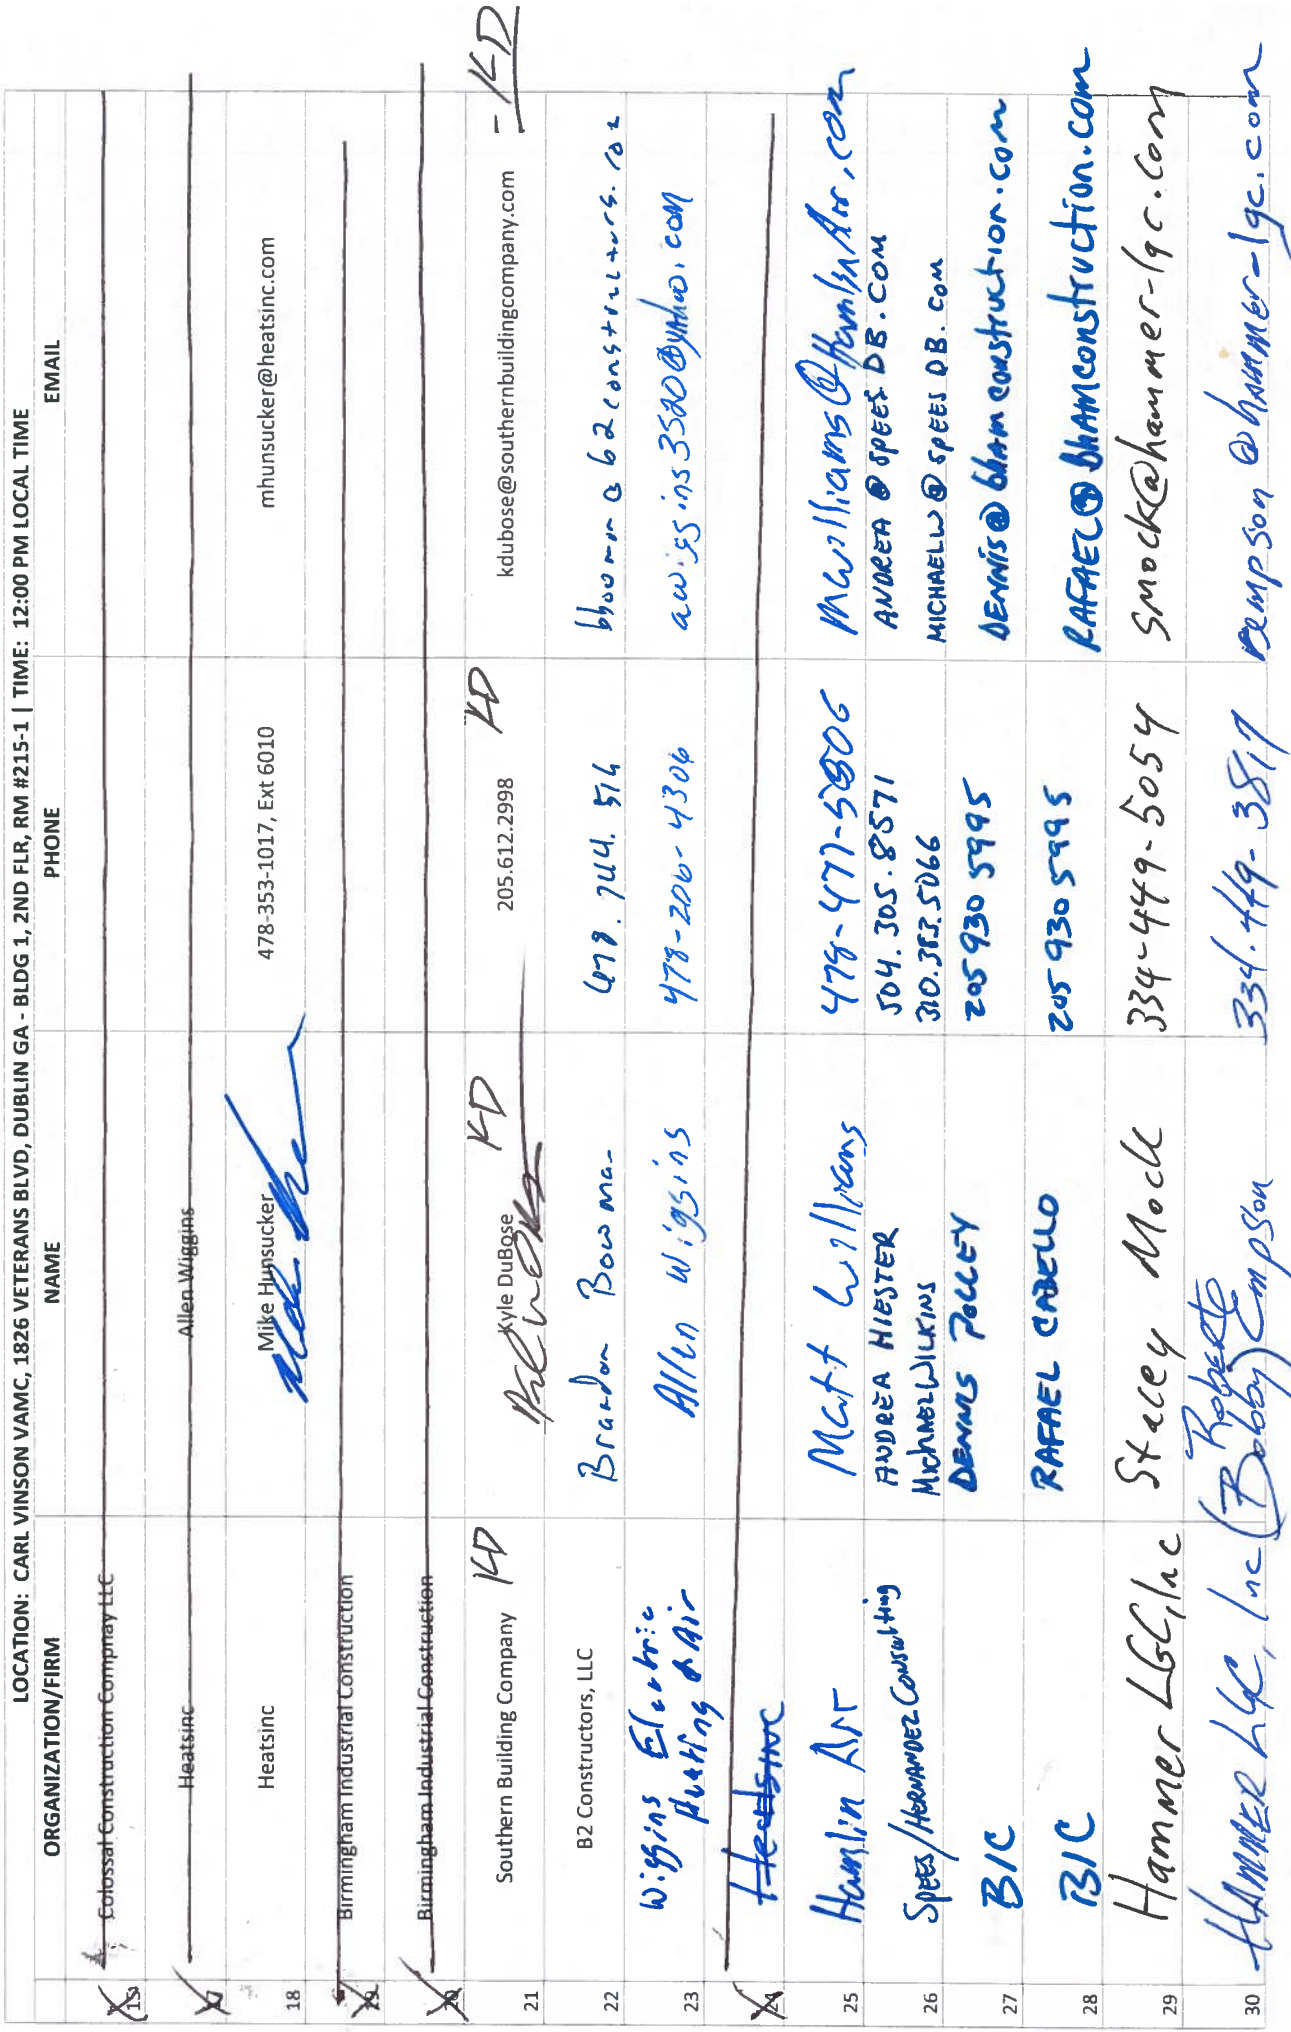 LOCATION: CARL VINSON VAMC, 1826 VETERANS BLVD, DUBLIN GA - BLDG 1, 2ND FLR, RM #215-1 | TIME: 12:00 PM LOCAL TIME
ORGANIZATION/FIRM NAME PHONE EMAIL
Colossal Construction Compnay LLC
17 Heatsinc Allen Wiggins
18 Heatsinc Mike Hunsucker 478-353-1017, Ext 6010 mhunsucker@heatsinc.com
19 Birmingham Industrial Construction
20 Birmingham Industrial Construction
21 Southern Building Company KD Kyle DuBose KD 205.612.2998 KD kdubose@southernbuildingcompany.com - KD
22 B2 Constructors, LLC Brandon Bowman 478.744.516
23 Wiggins Electric Heating & Air Allen Wiggins 478-206-4306 awiggins3520@yahoo.com
24 Heatsinc
25 Hamlin Air Matt Williams 478-477-5806 mwilliams@HamlinAir.com
ANDREA HIESTER 504.305.8571 ANDREA@SPEESDB.COM
26 SPEES/HERNANDEZ CONSULTING MICHAEL WILKINS 310.383.5066 MICHAELW@SPEESDB.COM
27 BIC DENNIS POLLEY 205 930 5995 DENNIS@bhamconstruction.com
28 BIC RAFAEL CABELLO 205 930 5995 RAFAELC@BHAMconstruction.com
29 Hammer LGC, Inc Stacey Mock 334-449-5054 smock@hammer-lgc.com
30 HAMMER LGC, Inc Roberto (Bobby) Empson 334.449-3817 rempson@hammer-lgc.com